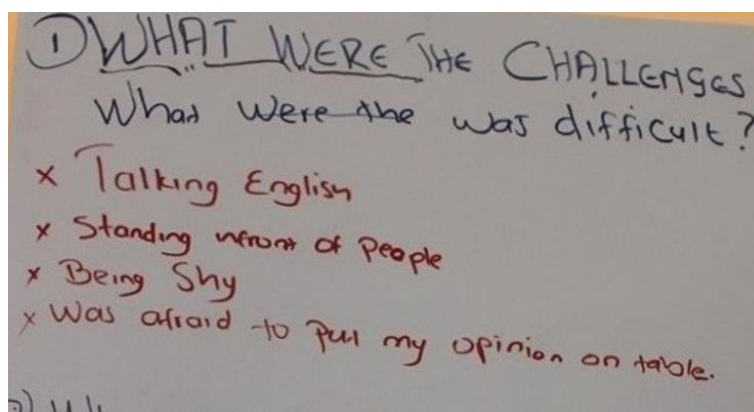 ① WHAT WERE THE CHALLENGES
What were the was difficult?
x Talking English
x Standing infront of People
x Being Shy
x Was afraid to put my opinion on table.